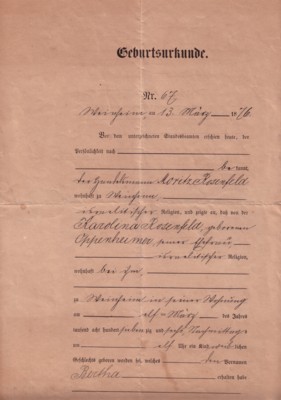 Geburtsurkunde.
Nr. 67.
Weinheim, a 13. März 1876
Vor dem unterzeichneten Standesbeamten erschien heute, der
Persönlichkeit nach
bekannt,
der Handelsmann Moritz Rosenfeld
wohnhaft zu Weinheim,
israelitischer Religion, und zeigte an, daß von der
Karolina Rosenfeld, geborenen
Oppenheimer, seiner Ehefrau
israelitischer Religion,
wohnhaft bei ihm,
zu Weinheim in seiner Wohnung
am elf März des Jahres
tausend acht hundert sieben zig und sechs, Nachmittags
um elf Uhr ein Kind weiblichen
Geschlechts geboren worden sei, welches den Vornamen
Bertha erhalten habe